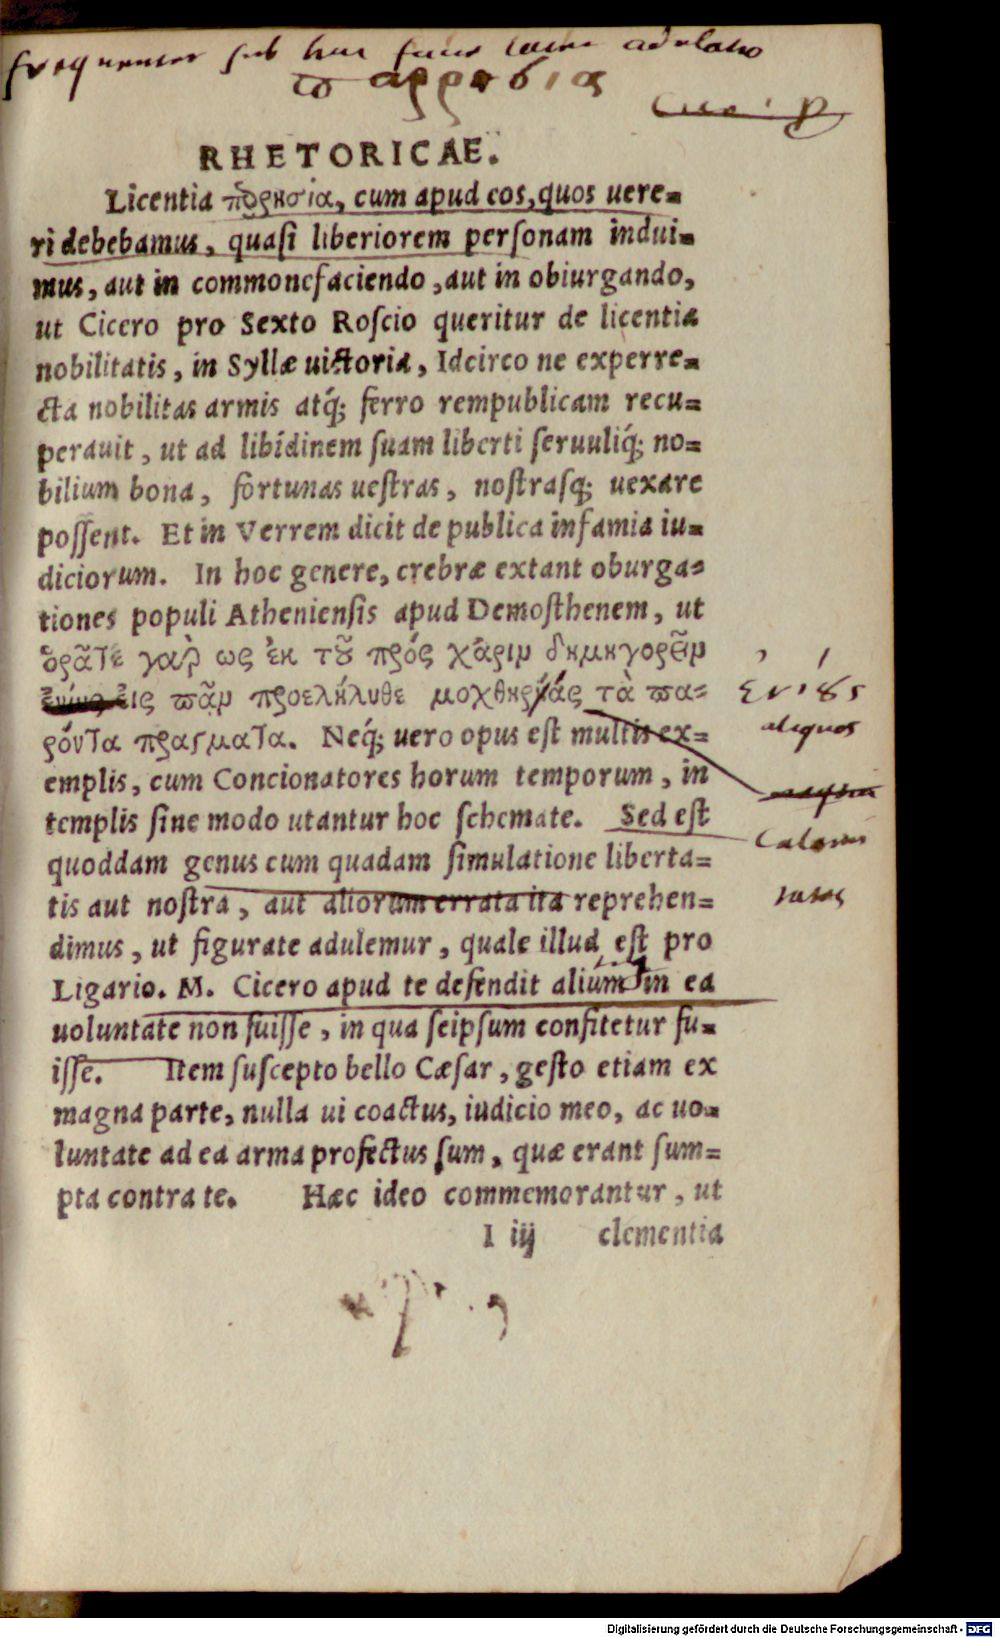 frequenter sub hac adulatio
RHETORICAE.
Licentia παρρησία, cum apud eos, quos uere=
ri debebamus, quasi liberiorem personam indui=
mus, aut in commonefaciendo, aut in obiurgando,
ut Cicero pro Sexto Roscio queritur de licentia
nobilitatis, in Syllæ uictoria, Idcirco ne experre=
cta nobilitas armis atq́; ferro rempublicam recu=
perauit, ut ad libidinem suam liberti seruuliq́; no=
bilium bona, fortunas uestras, nostrasq́; uexare
possent. Et in Verrem dicit de publica infamia iu=
diciorum. In hoc genere, crebræ extant oburga=
tiones populi Atheniensis apud Demosthenem, ut
ὁρᾶτε γαρ̀ ως ἐκ τȣ͂ πρός χάριμ δημηγορεῖμ
εἰς πᾶμ προελήλυθε μοχθηρίας τὰ πα=
ρόντα πραγματα. Neq́; uero opus est multis ex=
emplis, cum Concionatores horum temporum, in
templis sine modo utantur hoc schemate. Sed est
quoddam genus cum quadam simulatione liberta=
tis aut nostra, aut aliorum errata ita reprehen=
dimus, ut figurate adulemur, quale illud est pro
Ligario. M. Cicero apud te defendit alium in ea
uoluntate non fuisse, in qua seipsum confitetur fu=
isse. Item suscepto bello Cæsar, gesto etiam ex
magna parte, nulla ui coactus, iudicio meo, ac uo=
luntate ad ea arma profectus sum, quæ erant sum=
pta contra te. Hæc ideo commemorantur, ut
I iij clementia
ἐνίȣς
aliquos
Digitalisierung gefördert durch die Deutsche Forschungsgemeinschaft - DFG